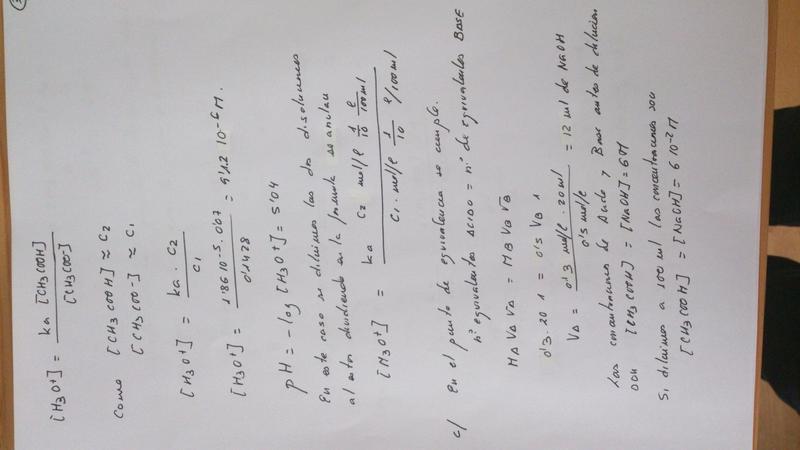 [H3O+] = ka [CH3COOH] / [CH3COO-]
Como [CH3COOH] ≈ C2
[CH3COO-] ≈ C1
[H3O+] = ka · C2 / C1
[H3O+] = 1'86 10-5 · 0'07 / 0'1428 = 9'12 10-6 M.
pH = -log [H3O+] = 5'04
En este caso si diluimos las dos disoluciones
al estar dividiendo en la formula se anulan
[H3O+] = ka C2 mol/l 1/10 l/100ml / C1 · mol/l 1/10 l/100ml
c/ en el punto de equivalencia se cumple.
nº equivalentes ACIDO = nº de equivalentes BASE
MA VA VA = MB VB VB
0'3 . 20 1 = 0'5 VB 1
VA = 0'3 mol/l · 20 ml / 0'5 mol/l = 12 ml de NaOH
Las concentraciones de Acido y Base antes de dilucion
son [CH3COOH] = [NaOH] = 6M
Si diluimos a 100 ml las concentraciones son
[CH3COOH] = [NaOH] = 6 10-2 M